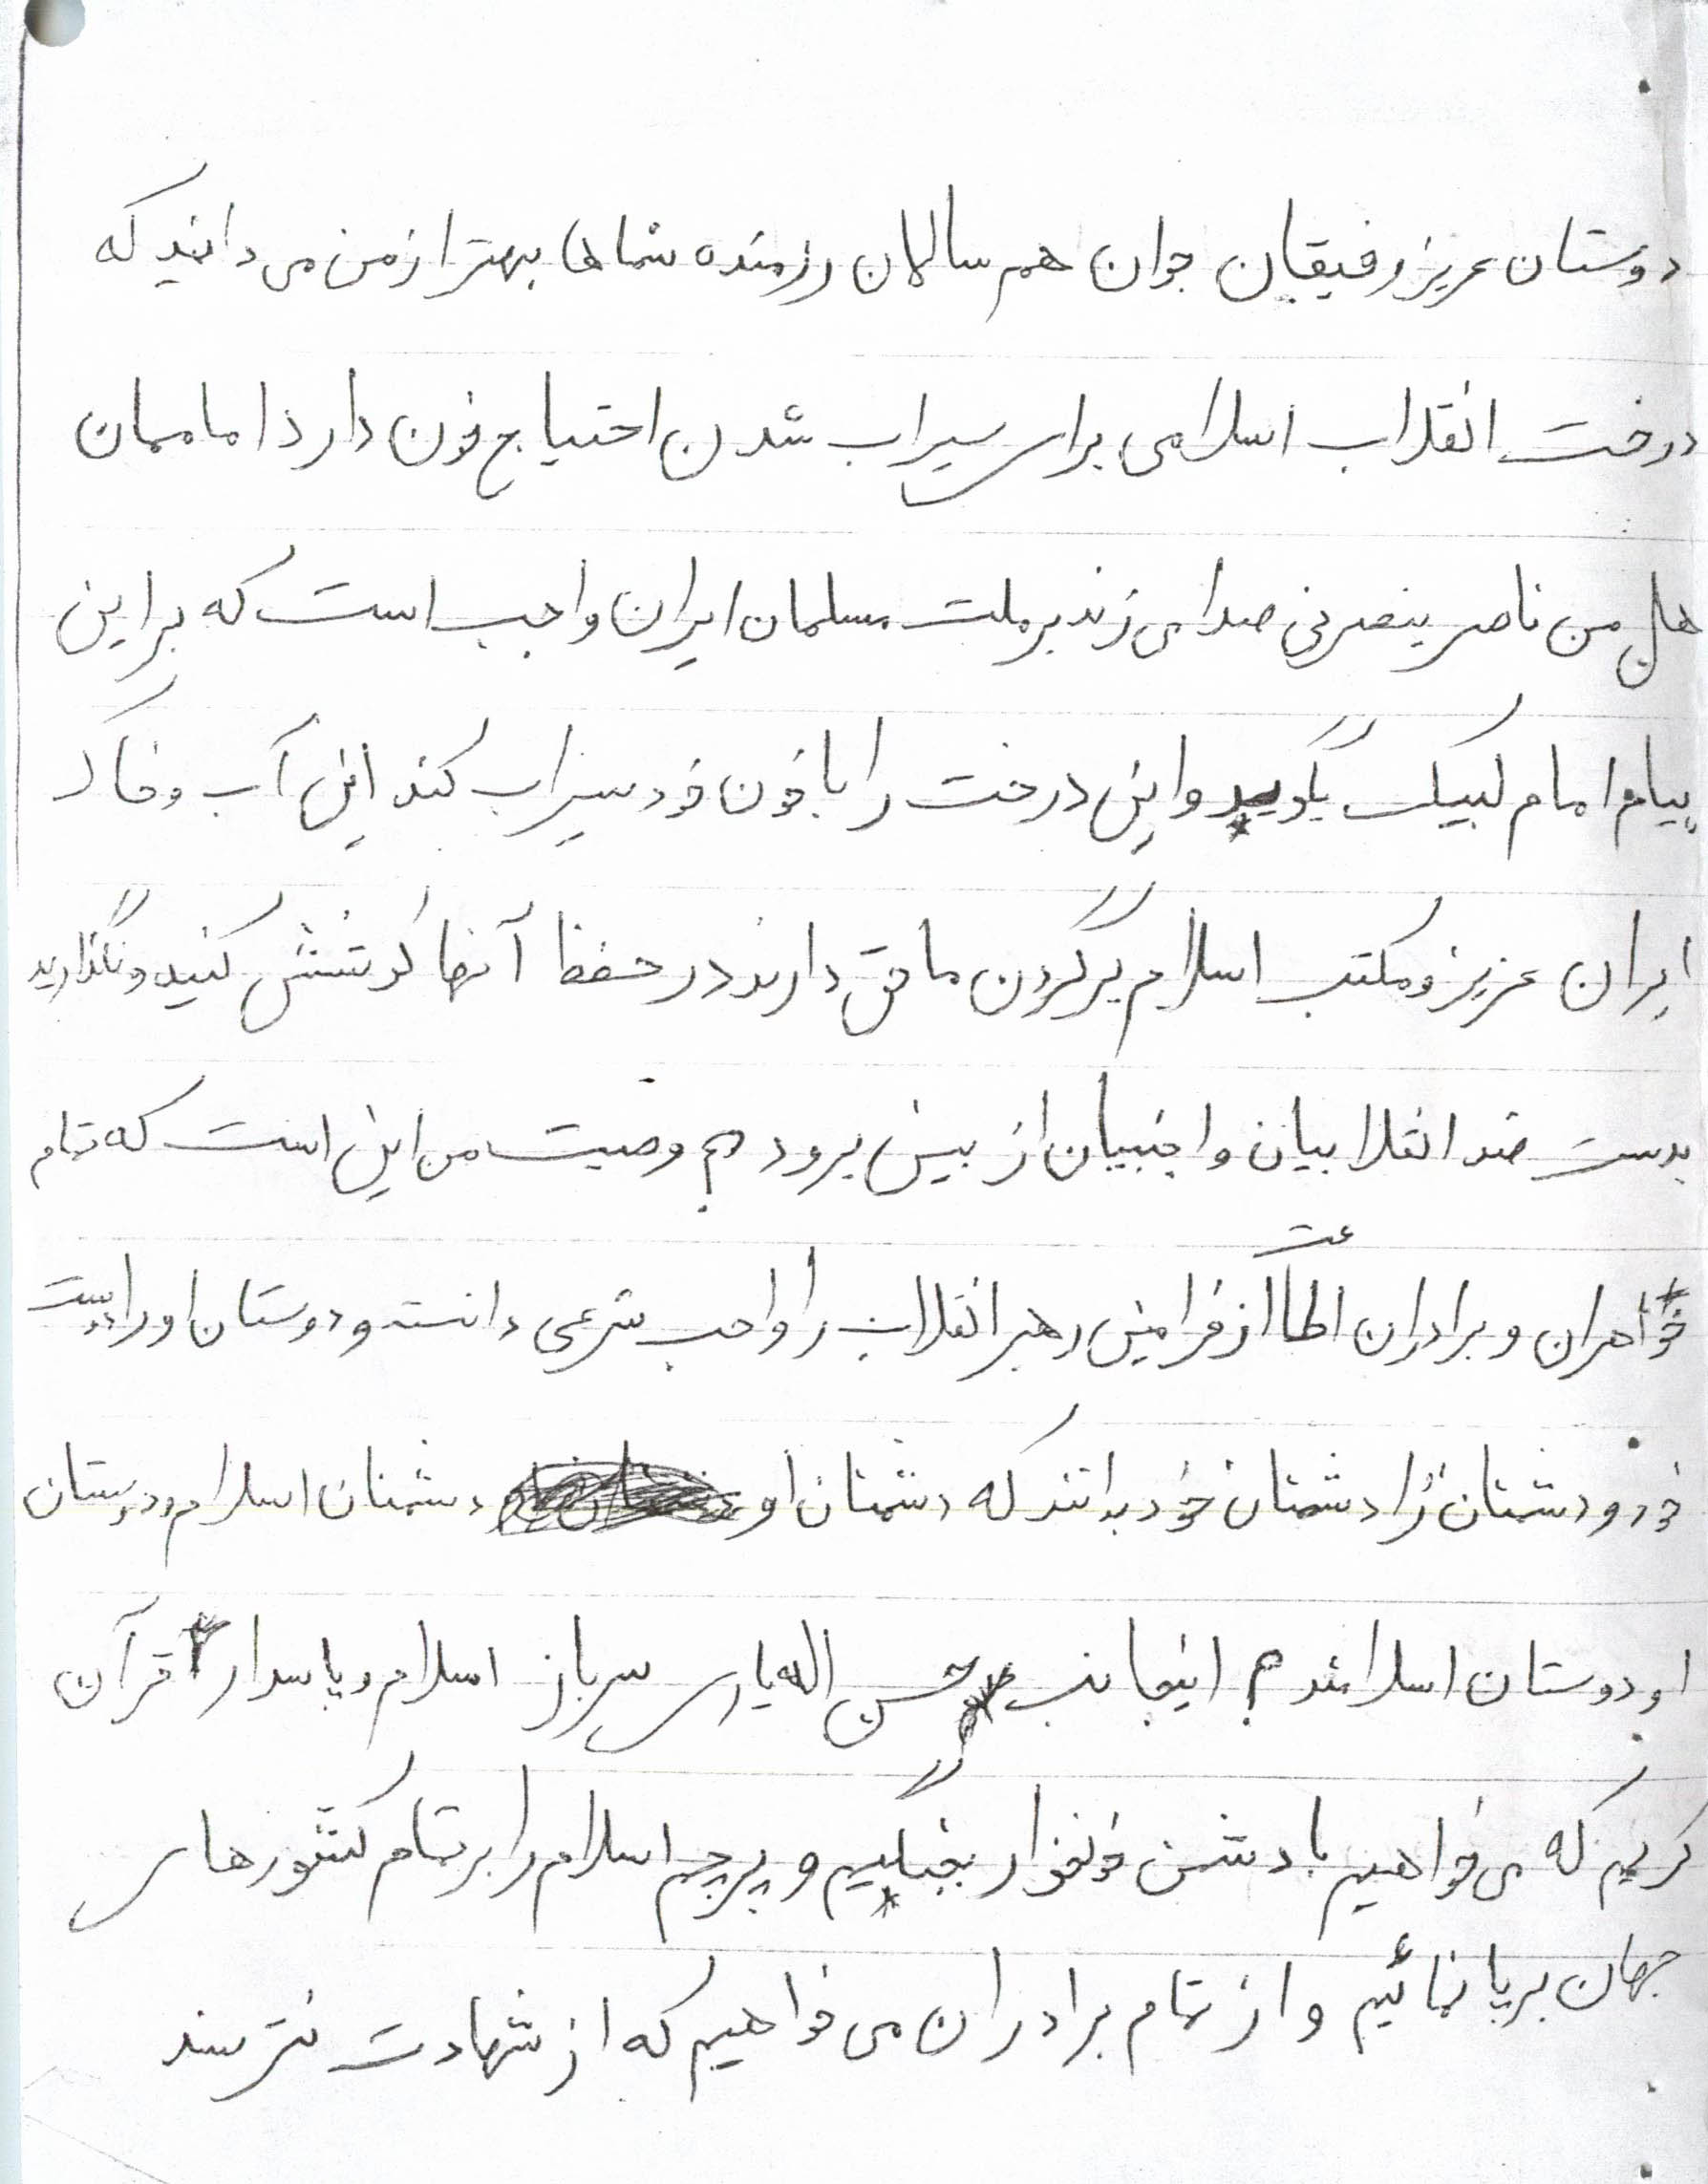 دوستان عزیز رفیقان جوان هم سالمان رزمنده شماها بهتر از من می دانید که
درخت انقلاب اسلامی برای سیراب شدن احتیاج خون دارد اماممان
هل من ناصر ینصرنی صدا می زند بر ملت مسلمان ایران واجب است که بر این
پیام امام لبیک بگوید و این درخت را با خون خود سیراب کند این آب و خاک
ایران عزیز و مکتب اسلام بر گردن ما حق دارند در حفظ آنها کوشش کنید و نگذارید
بدست ضد انقلابیان و اجنبیان از بین برود وصیت من این است که تمام
خواهران و برادران اطاعت از فرامین رهبر انقلاب را واجب شرعی دانسته و دوستان او را دوست
خود و دشمنان را دشمنان خود بدانند که دشمنان او دشمنان اسلام و دوستان
او دوستان اسلامند اینجانب حسن اله یاری سرباز اسلام و پاسدار قرآن
کریم که می خواهیم با دشمن خونخوار بجنگیم و پرچم اسلام را بر تمام کشورهای
جهان برپا نمائیم و از تمام برادران می خواهیم که از شهادت نترسند